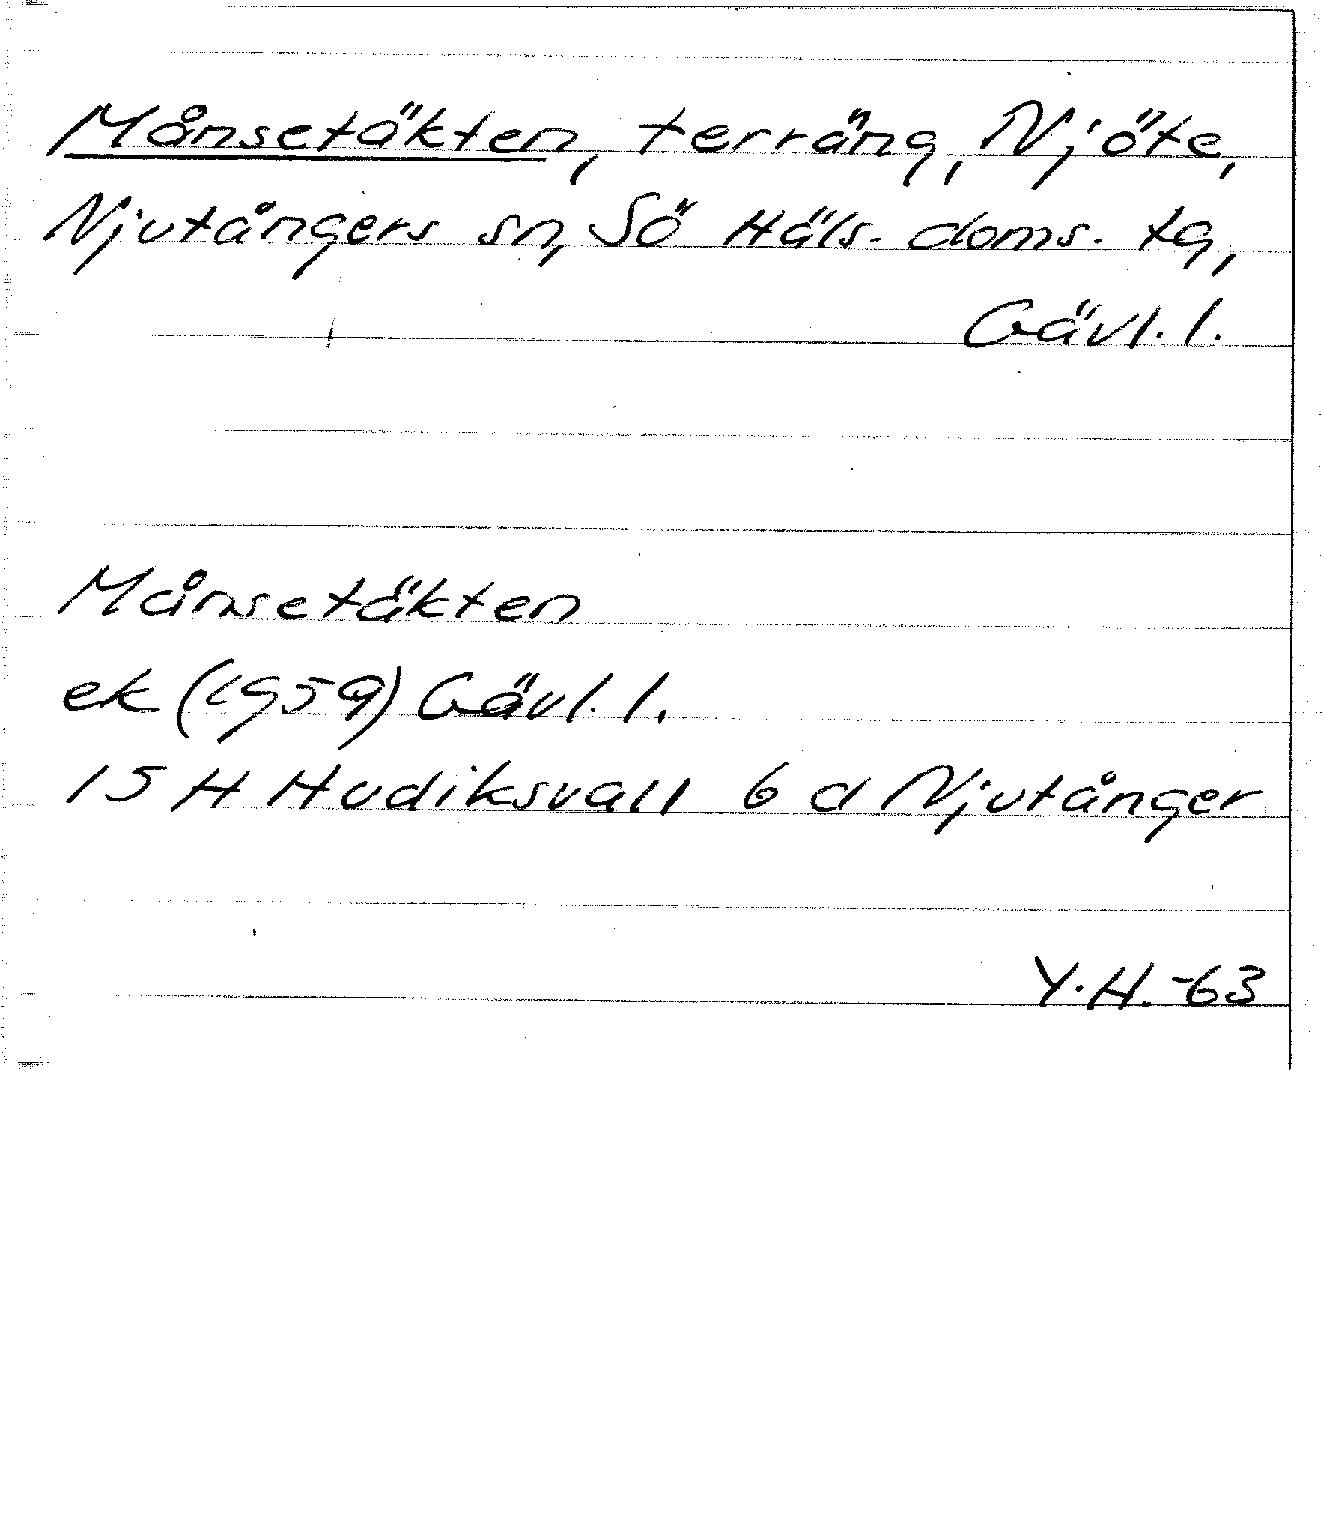 Månsetäkten, terräng, Njöte,
Njutångers sn, Sö Häls. doms. tg,
Gävl. l.
Månsetäkten
ek (1959) Gävl. l.
15 H Hudiksvall 6 d Njutånger
Y.H.-63